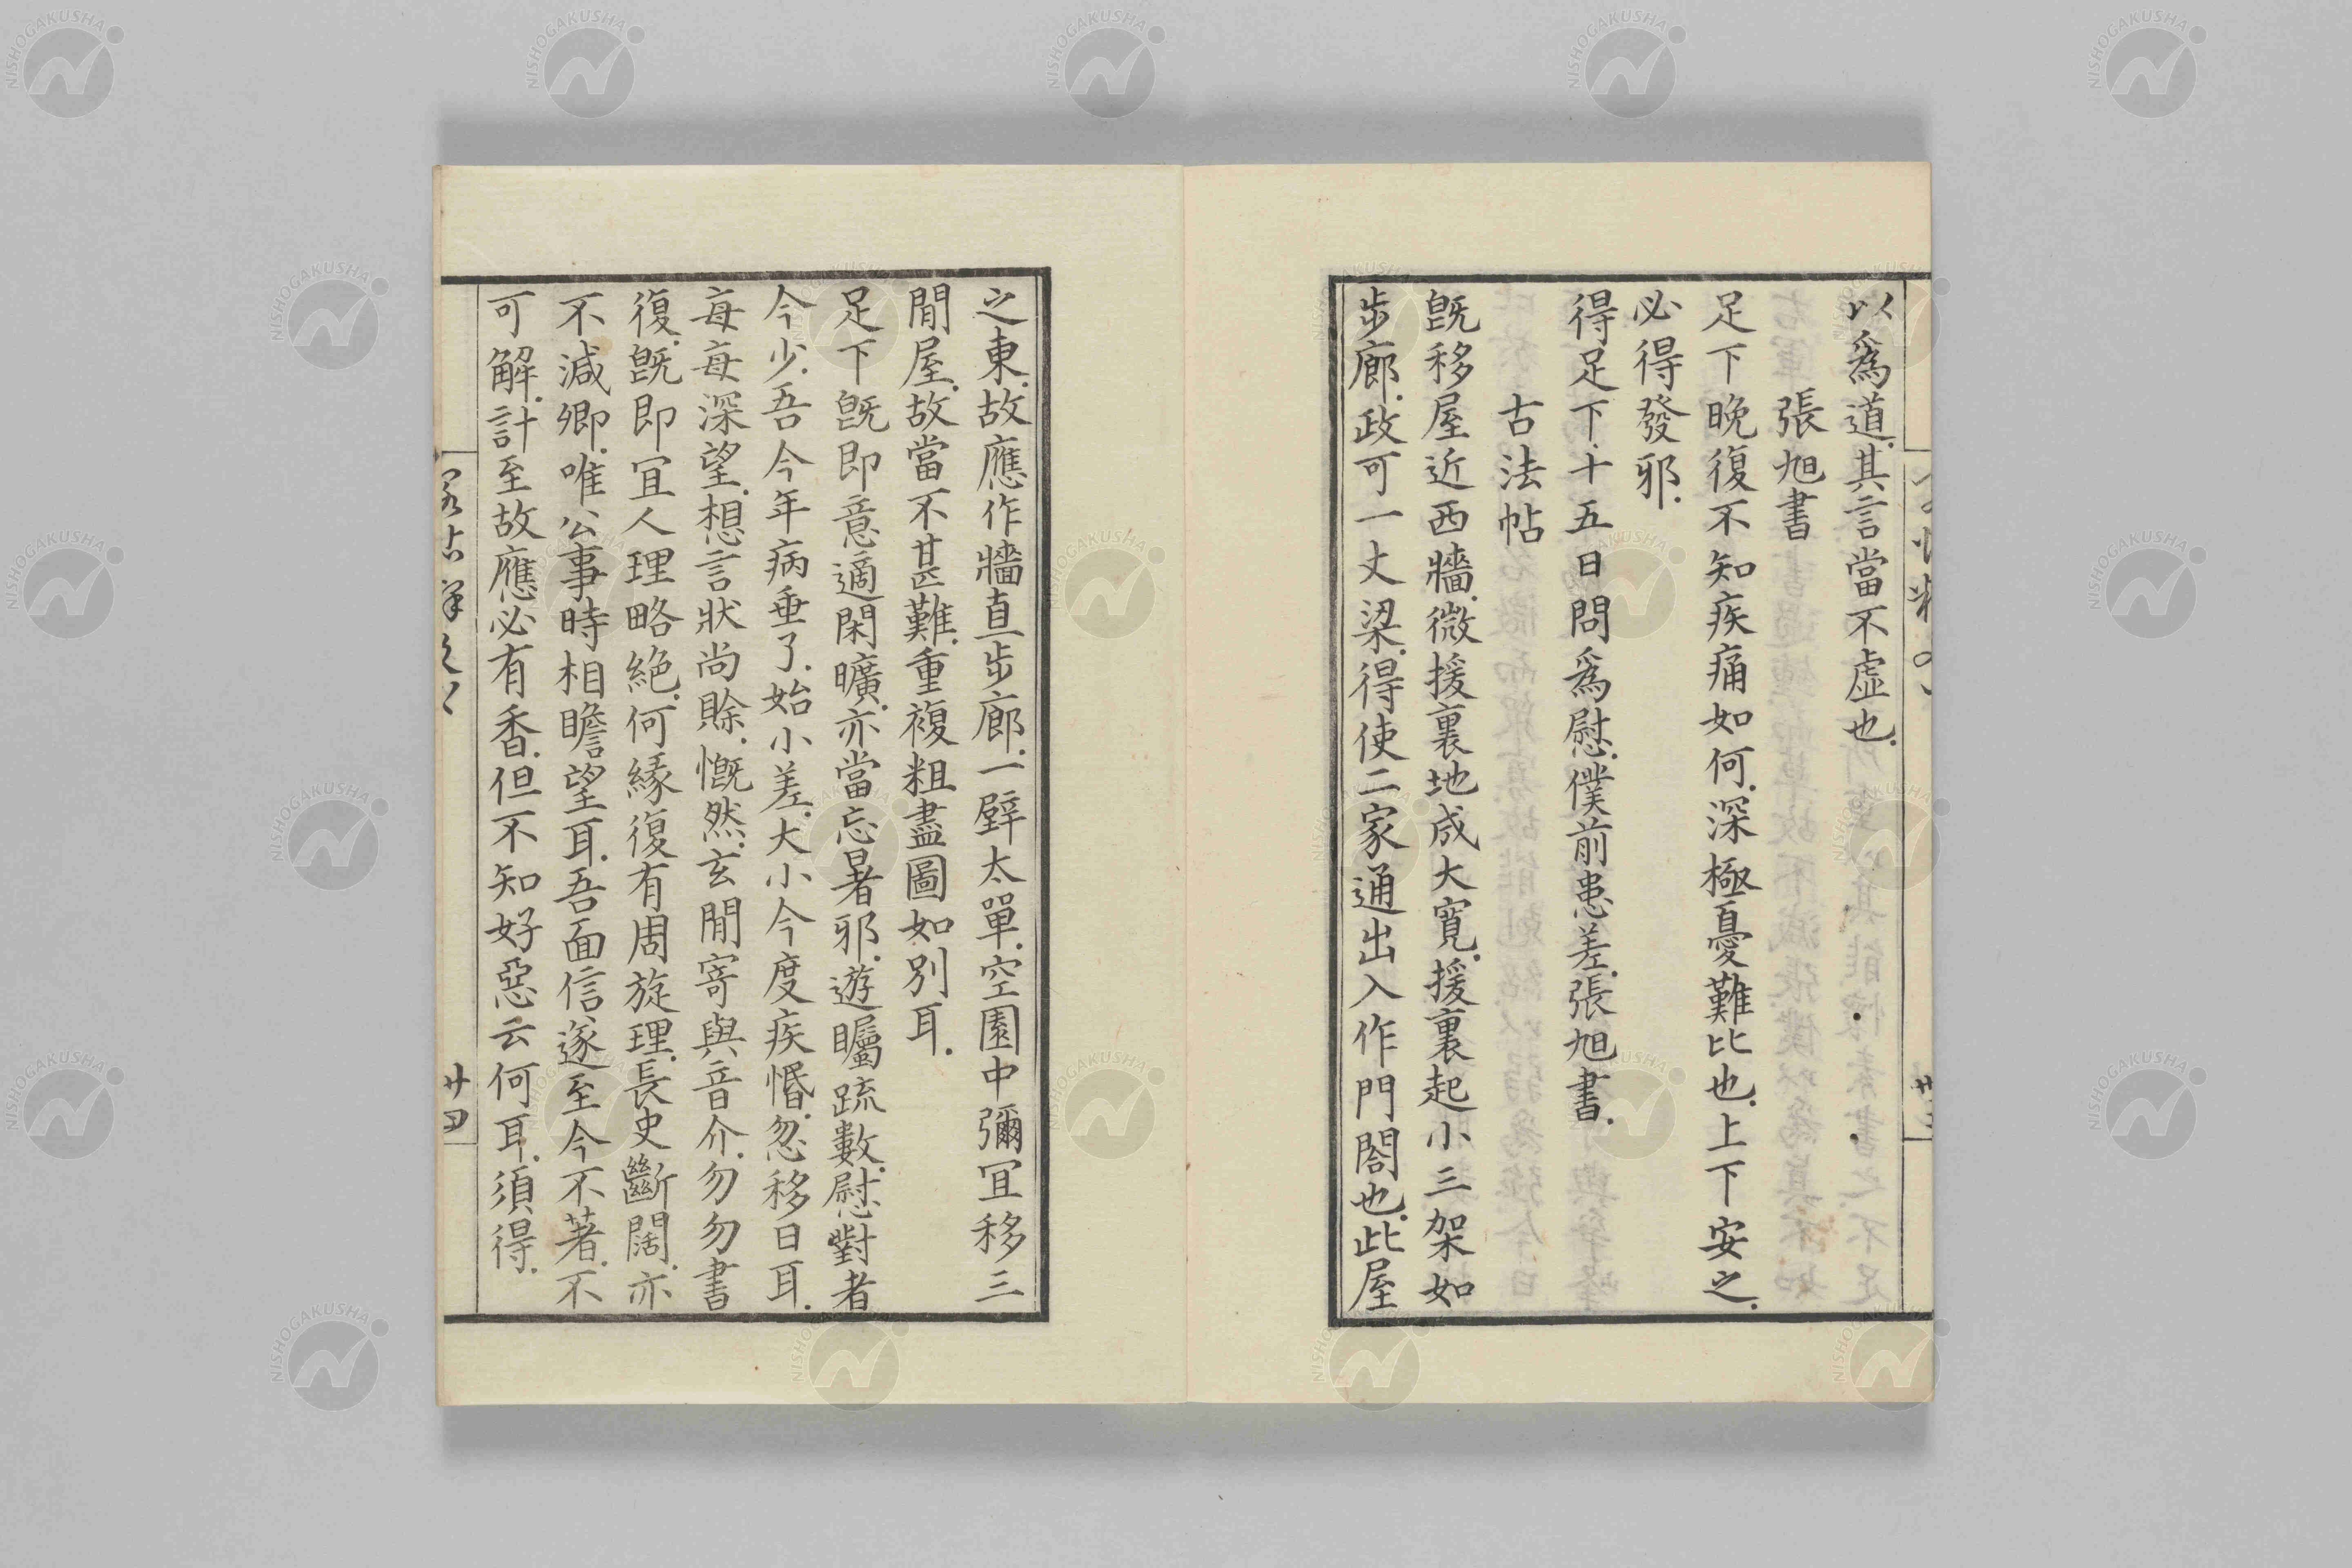 以爲道.其言當不虛也.
張旭書
足下晚復不知疾痛如何.深極憂難比也.上下安之.
必得發邪.
得足下.十五日問爲慰.僕前患差.張旭書.
古法帖
旣移屋近西牆.微援裏地成大寬.援裏起小三架如
步廊.政可一丈梁.得使二家通出入作門閤也.此屋
之東.故應作牆直步廊.一壁太單.空園中彌冝移三
閒屋.故當不甚難.重複粗盡圖如別耳.
足下旣即意適閑曠.亦當忘暑邪.遊矚疏數.慰對者
今少.吾今年病垂了.始小差.大小今度疾惛.忽移日耳.
每每深望.想言狀尚賖.慨然.玄閒寄與音介.勿勿書
復.旣即冝人理略絶.何緣復有周旋理.長史斷闊.亦
不減卿.唯公事時相瞻望耳.吾面信遂至今不著.不
可解.計至故應必有香.但不知好惡云何耳.須得.
廿四
NISHOGAKUSHA